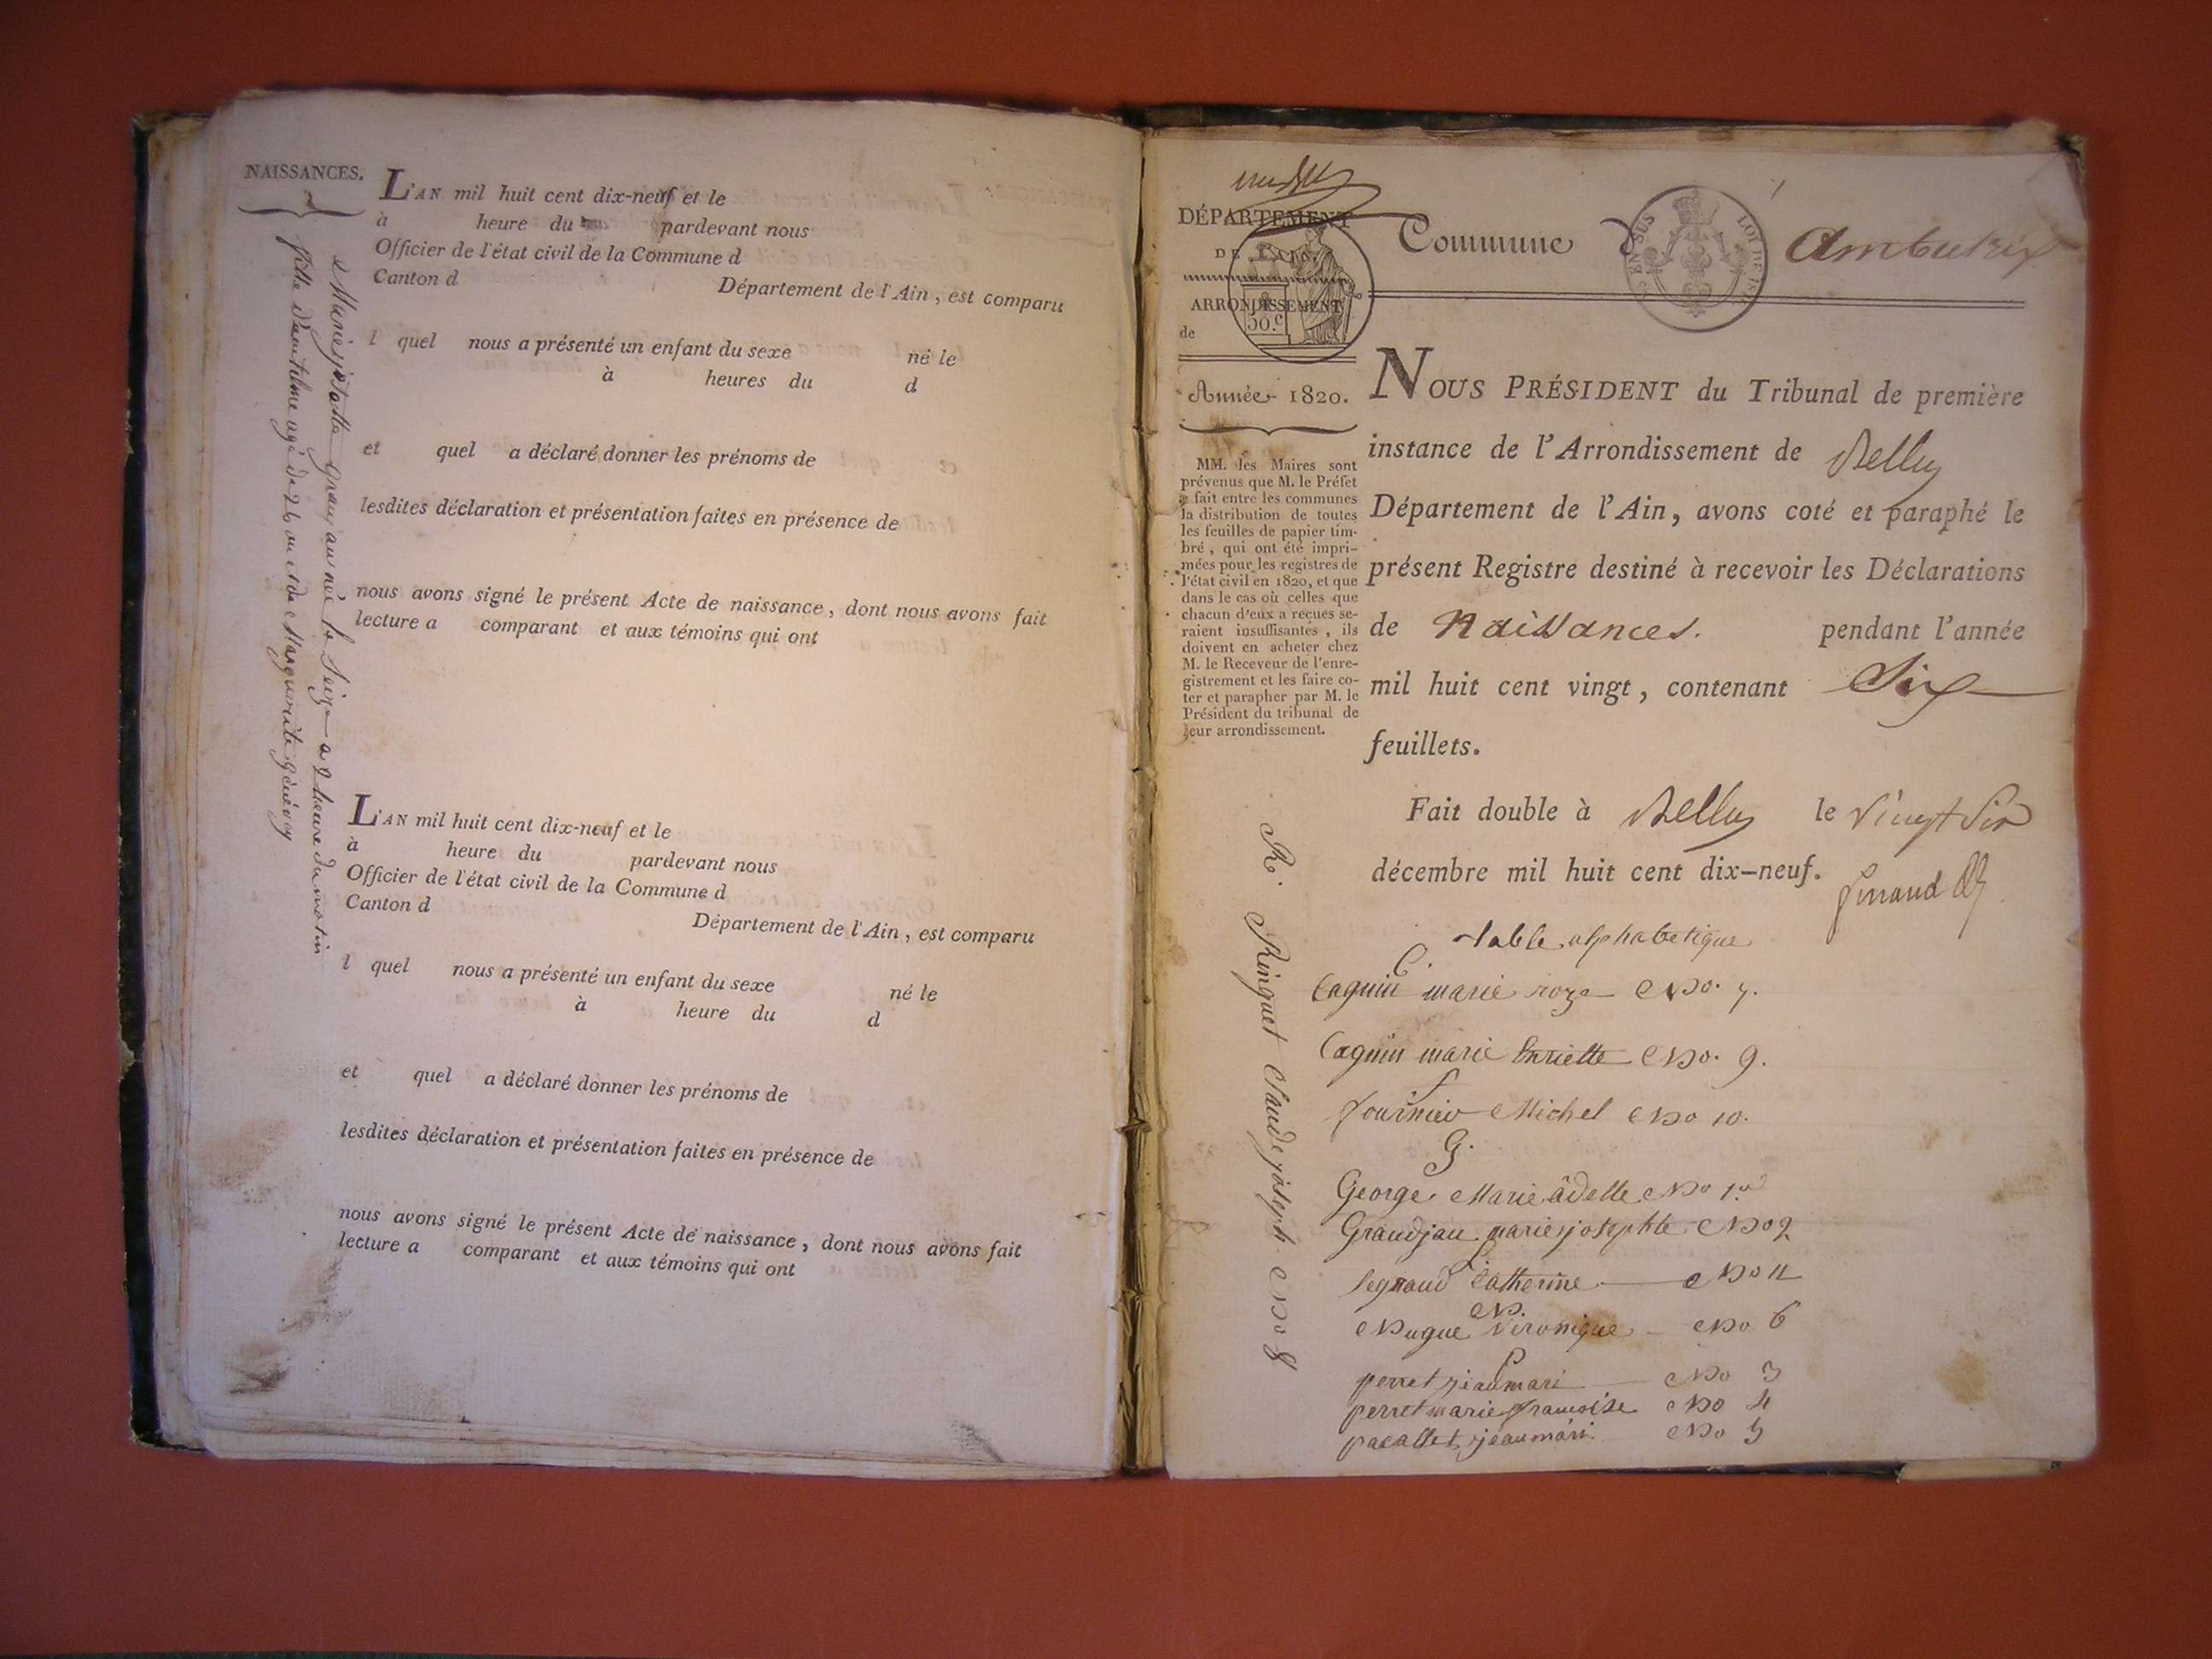 NAISSANCES.
L'AN mil huit cent dix-neuf et le
à heure du pardevant nous
Officier de l'état civil de la Commune d
Canton d Département de l'Ain, est comparu
l quel nous a présenté un enfant du sexe né le
à heures du d
et quel a déclaré donner les prénoms de
lesdites déclaration et présentation faites en présence de
nous avons signé le présent Acte de naissance, dont nous avons fait
lecture a comparant et aux témoins qui ont
L'AN mil huit cent dix-neuf et le
à heure du pardevant nous
Officier de l'état civil de la Commune d
Canton d Département de l'Ain, est comparu
l quel nous a présenté un enfant du sexe né le
à heure du d
et quel a déclaré donner les prénoms de
lesdites déclaration et présentation faites en présence de
nous avons signé le présent Acte de naissance, dont nous avons fait
lecture a comparant et aux témoins qui ont
née le Seize a 9 heure du matin
fille d'anthelme agé de 26 an et de Marguerite
DÉPARTEMENT
DE L'AIN.
ARRONDISSEMENT
de
50.c
Année 1820.
MM. les Maires sont
prévenus que M. le Préfet
a fait entre les communes
la distribution de toutes
les feuilles de papier tim-
bré, qui ont été impri-
mées pour les registres de
l'état civil en 1820, et que
dans le cas où celles que
chacun d'eux a reçues se-
raient insuffisantes, ils
doivent en acheter chez
M. le Receveur de l'enre-
gistrement et les faire co-
ter et parapher par M. le
Président du tribunal de
leur arrondissement.
Commune d Ambutrix
EN SUS LOI DE
NOUS PRÉSIDENT du Tribunal de première
instance de l'Arrondissement de Belley
Département de l'Ain, avons coté et paraphé le
présent Registre destiné à recevoir les Déclarations
de Naissances. pendant l'année
mil huit cent vingt, contenant Six
feuillets.
Fait double à Belley le vingt Six
décembre mil huit cent dix-neuf.
table alphabetique
C.
Cagnin marie roze No. 7.
Cagnin marie enriette No. 9.
f
fournier Michel No 10.
G.
George Marie adelle No 1er
Grandjan marie josephte No 2
L
legnaud Catherine No 11
N.
Nugue Veronique No 6
P
perret jeanmari No 3
perret marie francoise No 4
pacallet jeanmari No 5
R. Ringuet Claude joseph No 8